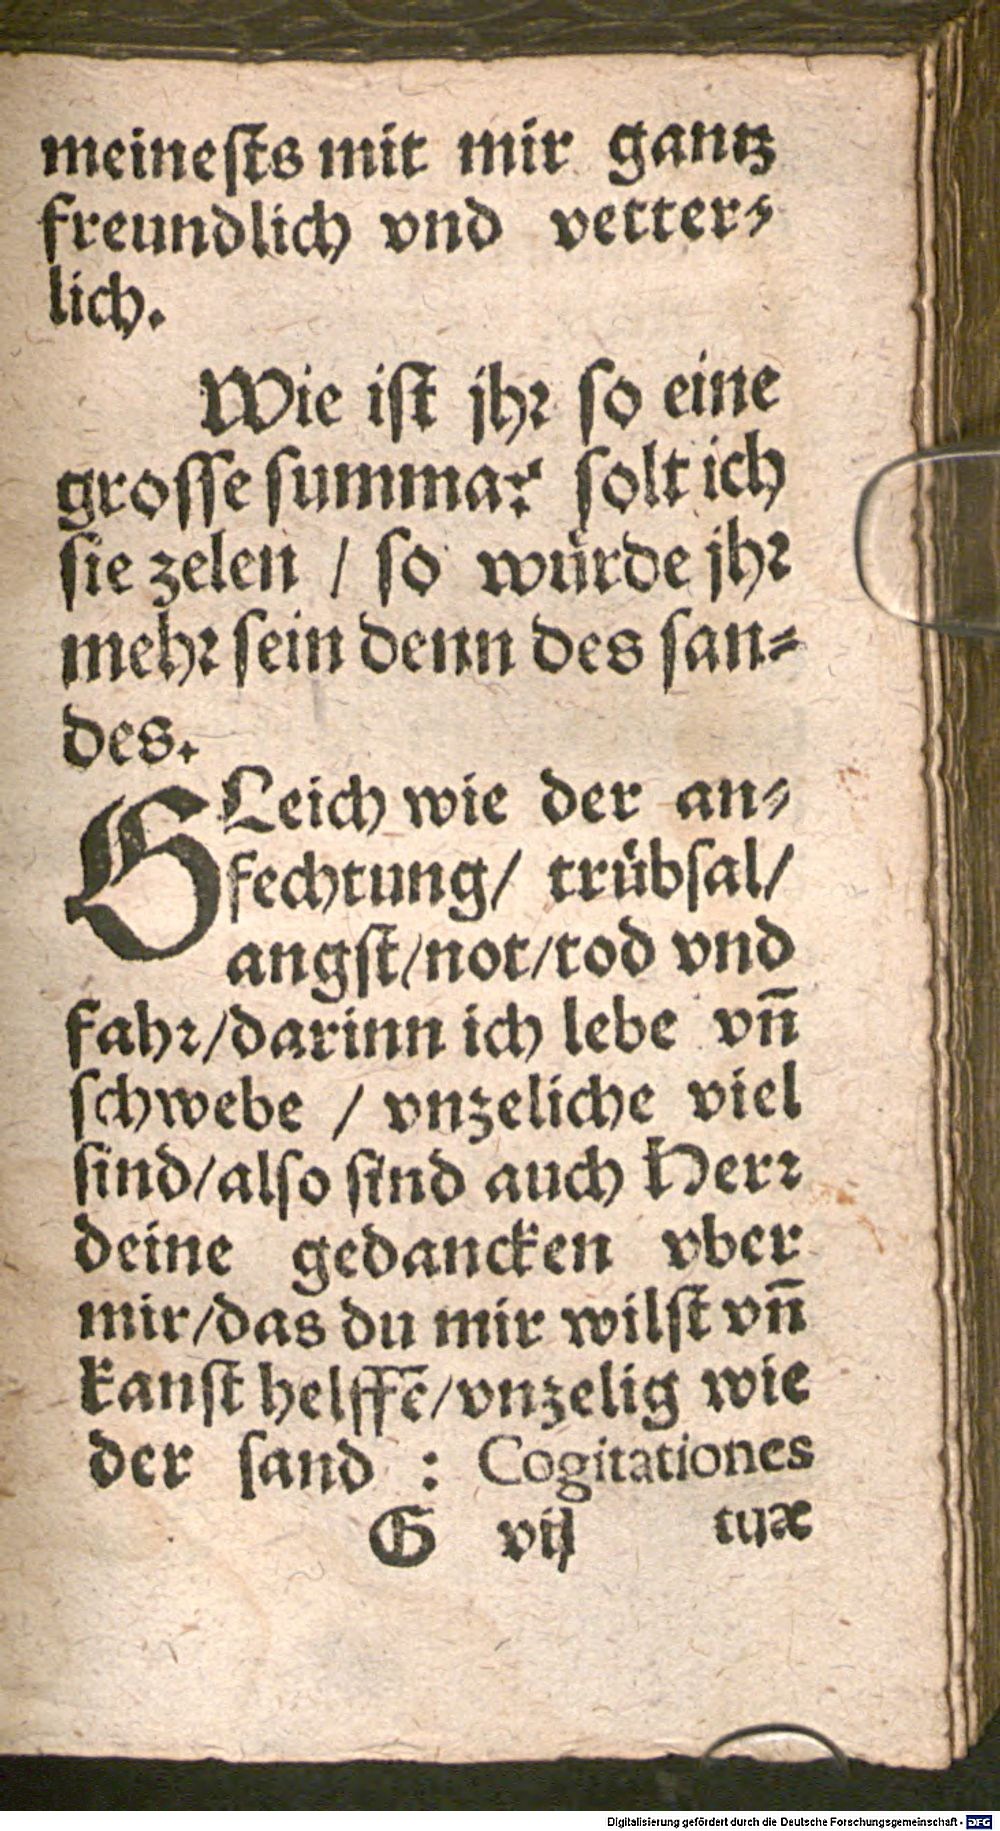 meineſts mit mir gantz
freundlich vnd vetter⸗
lich.
Wie iſt jhr ſo eine
groſſe ſumma? ſolt ich
ſie zelen / ſo würde jhr
mehr ſein denn des ſan⸗
des.
GLeich wie der an⸗
fechtung/ trübſal/
angſt/not/tod vnd
fahr/darinn ich lebe vn̄
ſchwebe / vnzeliche viel
ſind/alſo ſind auch Herr
deine gedancken vber
mir/das du mir wilſt vn̄
kanſt helffē/vnzelig wie
der ſand : Cogitationes
G vij tuæ
Digitalisierung gefördert durch die Deutsche Forschungsgemeinschaft - DFG